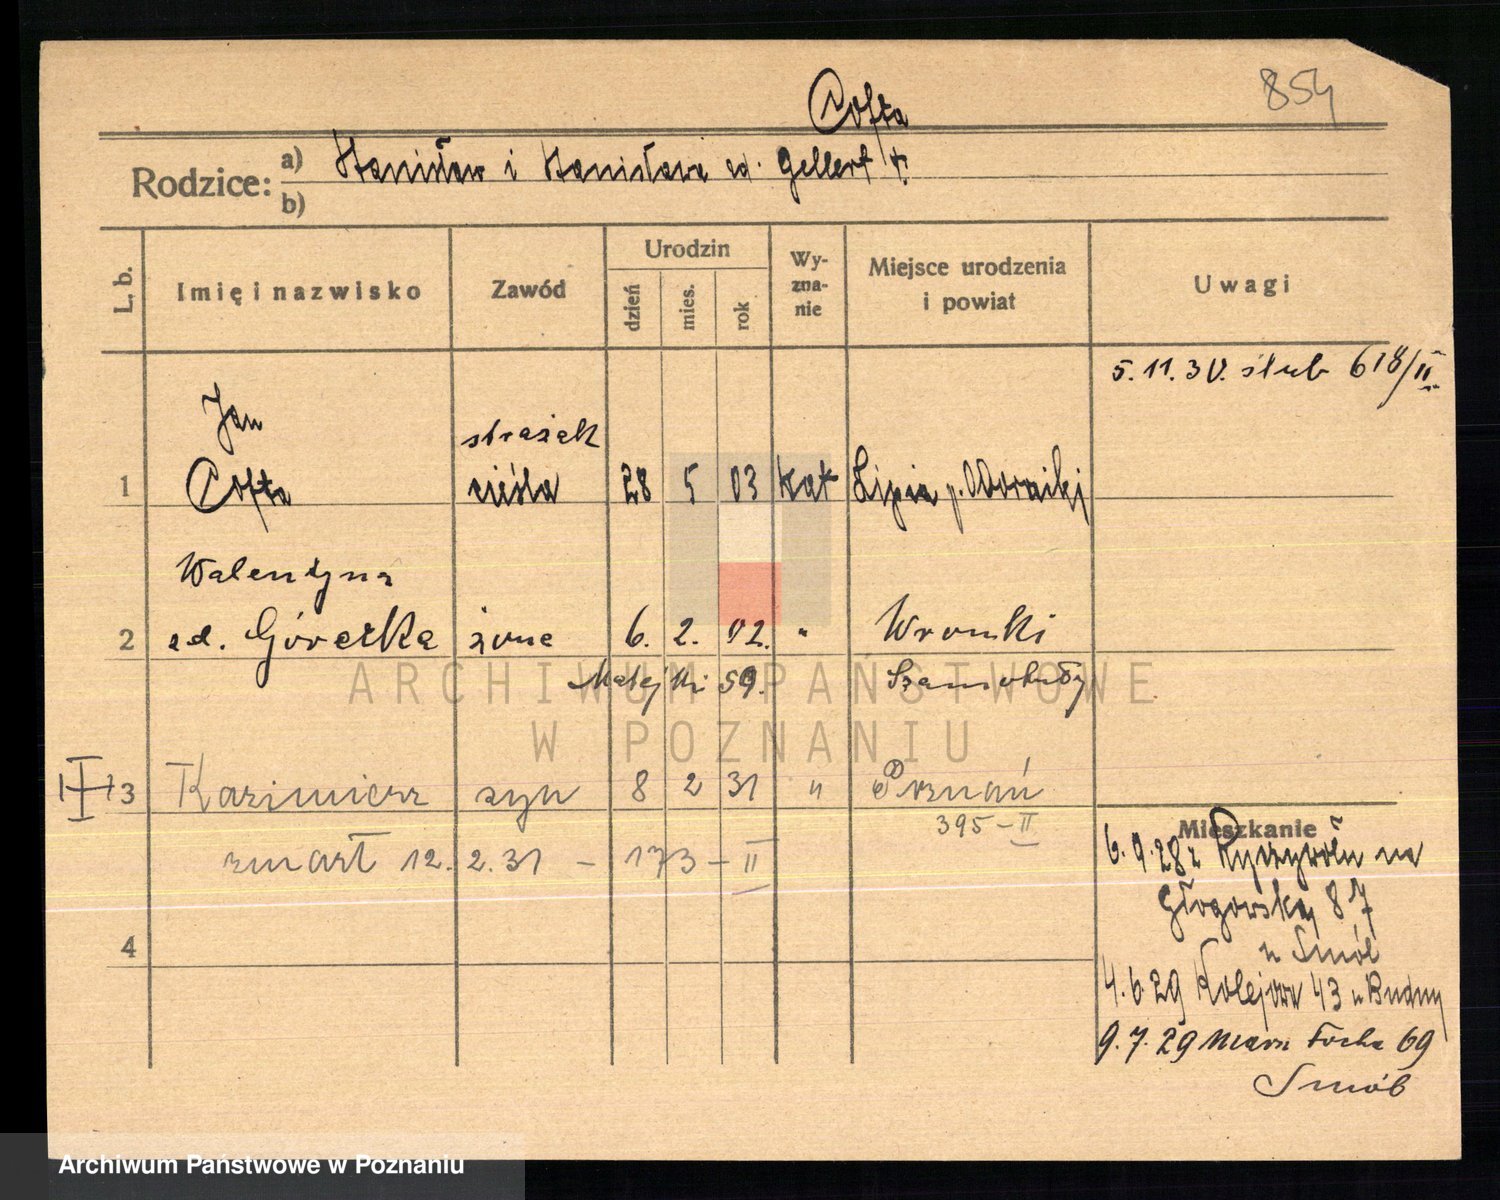 854
Cofta
Rodzice: a) Stanisław i Stanisława zd. Gellert †.
b)
L. b. Imię i nazwisko Zawód Urodzin dzień mies. rok Wyznanie Miejsce urodzenia i powiat Uwagi
5. 11. 30. ślub 618/II
Jan strażak
1 Cofta cieśla 28 5 03 kat Lipia p. Oborniki
Walentyna
2 zd. Górecka żona 6. 2. 02. " Wronki
Matejki 59. Szamotuły
3 Kazimierz syn 8 2 31 " Poznań
395-II
zmarł 12. 2. 31 - 173 - II
4
Mieszkanie
6. 9. 28 z Ryczywołu na
Głogowską 87
u Smól
4. 6. 29 Kolejowa 43 u Budny
9. 7. 29 Marsz Focha 69
Smób
ARCHIWUM PAŃSTWOWE
W POZNANIU
Archiwum Państwowe w Poznaniu